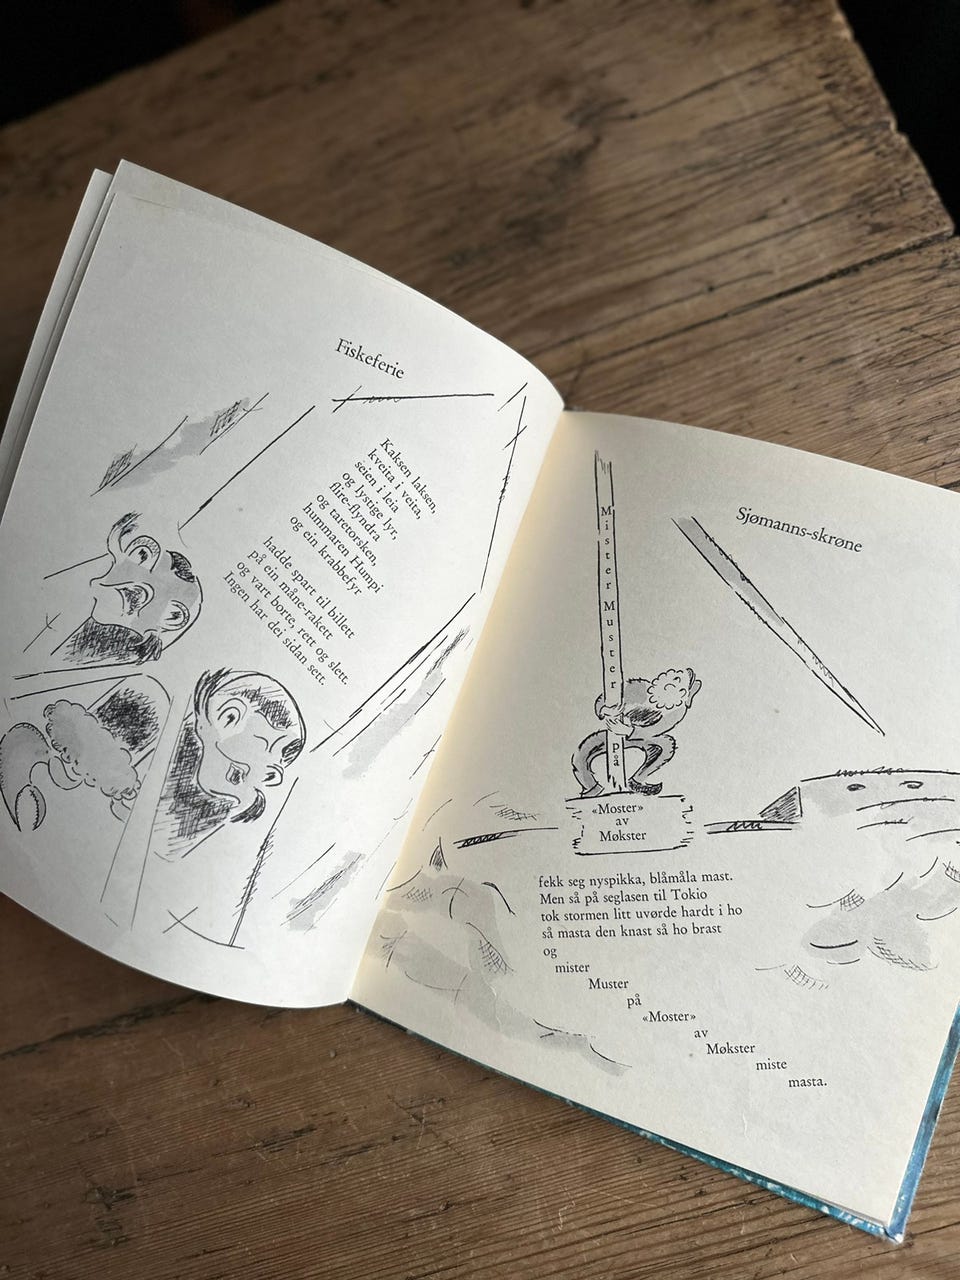 Fiskeferie
Kaksen laksen,
kveita i veita,
seien i leia
og lystige lyr,
flire-flyndra
og taretorsken,
hummaren Humpi
og ein krabbefyr
hadde spart til billett
på ein måne-rakett
og vart borte, rett og slett.
Ingen har dei sidan sett.
Sjømanns-skrøne
Mister Muster
på
«Moster»
av
Møkster
fekk seg nyspikka, blåmåla mast.
Men så på seglasen til Tokio
tok stormen litt uvørde hardt i ho
så masta den knast så ho brast
og
mister
Muster
på
«Moster»
av
Møkster
miste
masta.